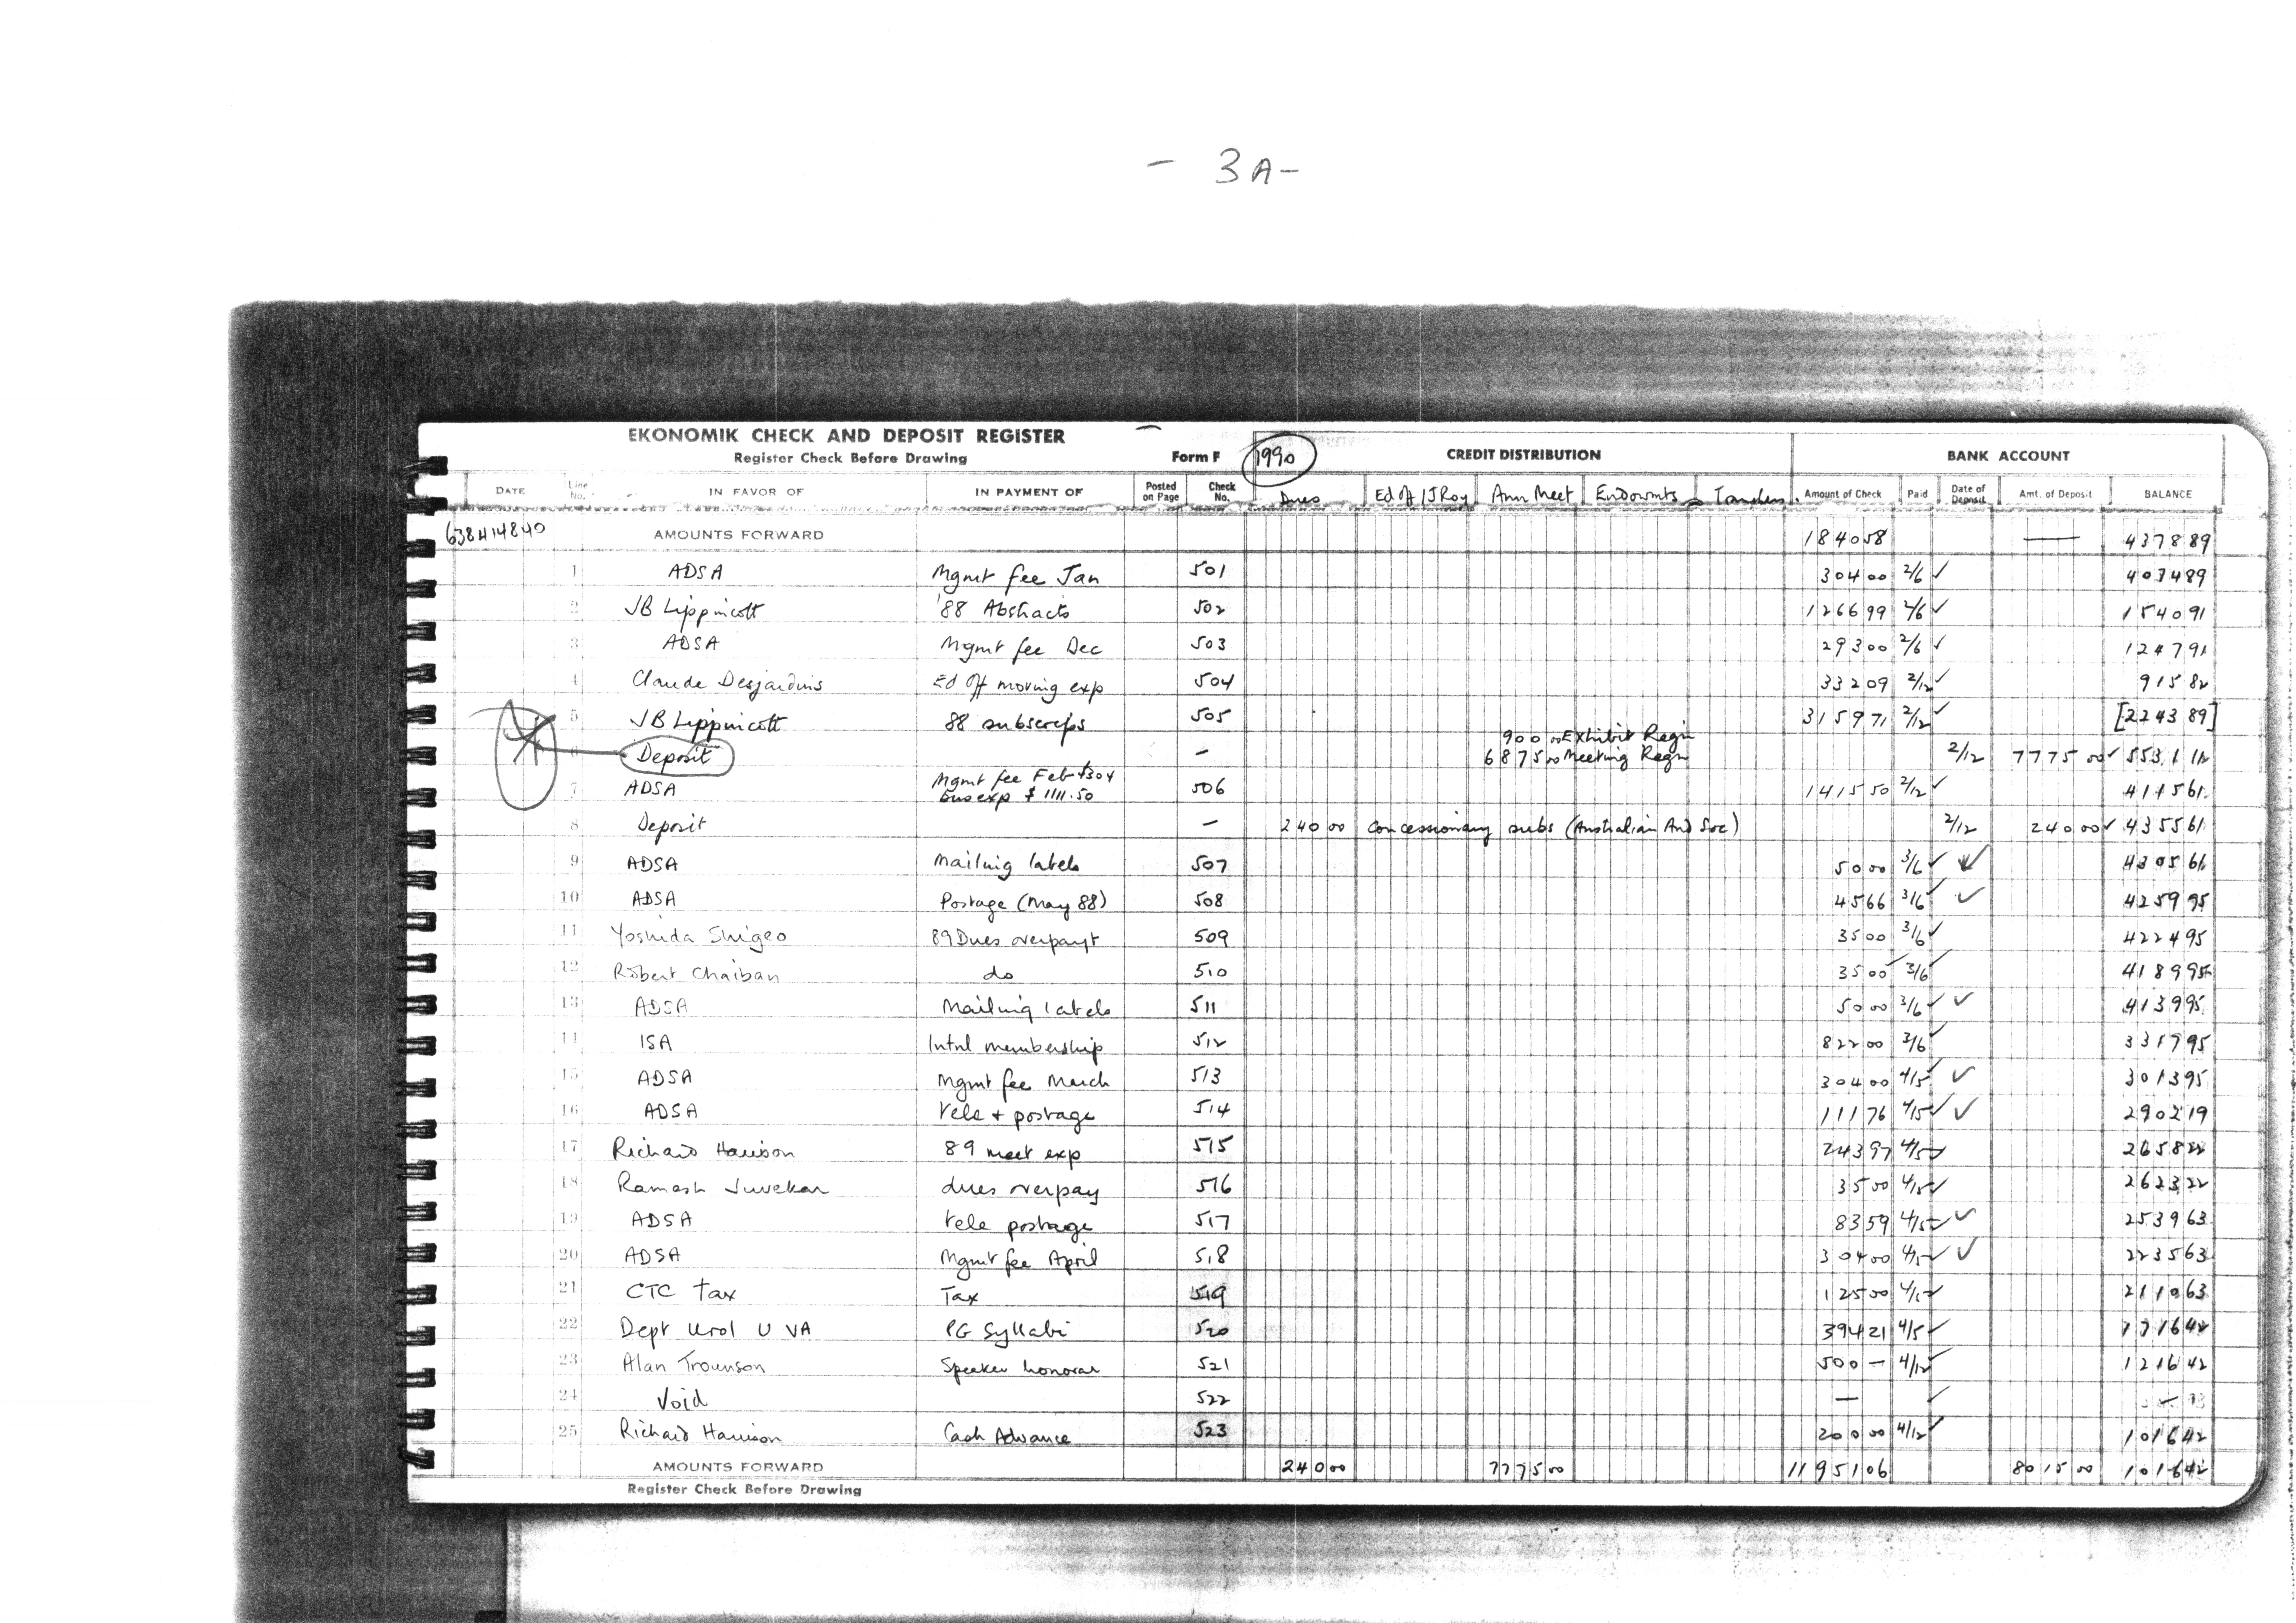 - 3A-
EKONOMIK CHECK AND DEPOSIT REGISTER
Register Check Before Drawing Form F 1990 CREDIT DISTRIBUTION BANK ACCOUNT
DATE Line No. IN FAVOR OF IN PAYMENT OF Posted on Page Check No. Dues Ed Off/JRoy Ann Meet Endowmts Transfers Amount of Check Paid Date of Deposit Amt. of Deposit BALANCE
638414840 AMOUNTS FORWARD 1840 58 — 4378 89
1 ADSA Mgmt fee Jan 501 304 00 2/6 ✓ 4074 89
2 JB Lippincott '88 Abstracts 502 1266 99 2/6 ✓ 1540 91
3 ADSA Mgmt fee Dec 503 293 00 2/6 ✓ 1247 91
4 Claude Desjardins Ed Off moving exp 504 332 09 2/12 ✓ 915 82
5 JB Lippincott 88 subscrips 505 3159 71 2/12 ✓ [2243 89]
900 00 Exhibit Regn
6 Deposit — 6875 00 Meeting Regn 2/12 7775 00 ✓ 5531 11
7 ADSA Mgmt fee Feb $304
Bus exp $ 1111.50 506 1415 50 2/12 ✓ 4115 61
8 Deposit — 240 00 Concessionary subs (Australian And Soc) 2/12 240 00 ✓ 4355 61
9 ADSA Mailing labels 507 50 00 3/6 ✓ ✓ 4305 61
10 ADSA Postage (May 88) 508 45 66 3/6 ✓ ✓ 4259 95
11 Yoshida Shigeo 89 Dues overpayt 509 35 00 3/6 ✓ 4224 95
12 Robert Chaiban do 510 35 00 3/6 ✓ 4189 95
13 ADSA Mailing labels 511 50 00 3/6 ✓ ✓ 4139 95
14 ISA Intnl membership 512 822 00 3/6 ✓ 3317 95
15 ADSA Mgmt fee March 513 304 00 4/5 ✓ ✓ 3013 95
16 ADSA tele + postage 514 111 76 4/5 ✓ ✓ 2902 19
17 Richard Harrison 89 meet exp 515 243 97 4/5 ✓ 2658 22
18 Ramesh Juvekar dues overpay 516 35 00 4/5 ✓ 2623 22
19 ADSA tele postage 517 83 59 4/5 ✓ ✓ 2539 63
20 ADSA Mgmt fee April 518 304 00 4/5 ✓ ✓ 2235 63
21 CTC Tax Tax 519 125 00 4/5 ✓ 2110 63
22 Dept Urol U VA PG Syllabi 520 394 21 4/5 ✓ 1716 42
23 Alan Trounson Speaker honorar 521 500 — 4/12 ✓ 1216 42
24 Void 522 — ✓ —
25 Richard Harrison Cash Advance 523 200 00 4/12 ✓ 1016 42
AMOUNTS FORWARD 240 00 7775 00 11951 06 8015 00 1016 42
Register Check Before Drawing